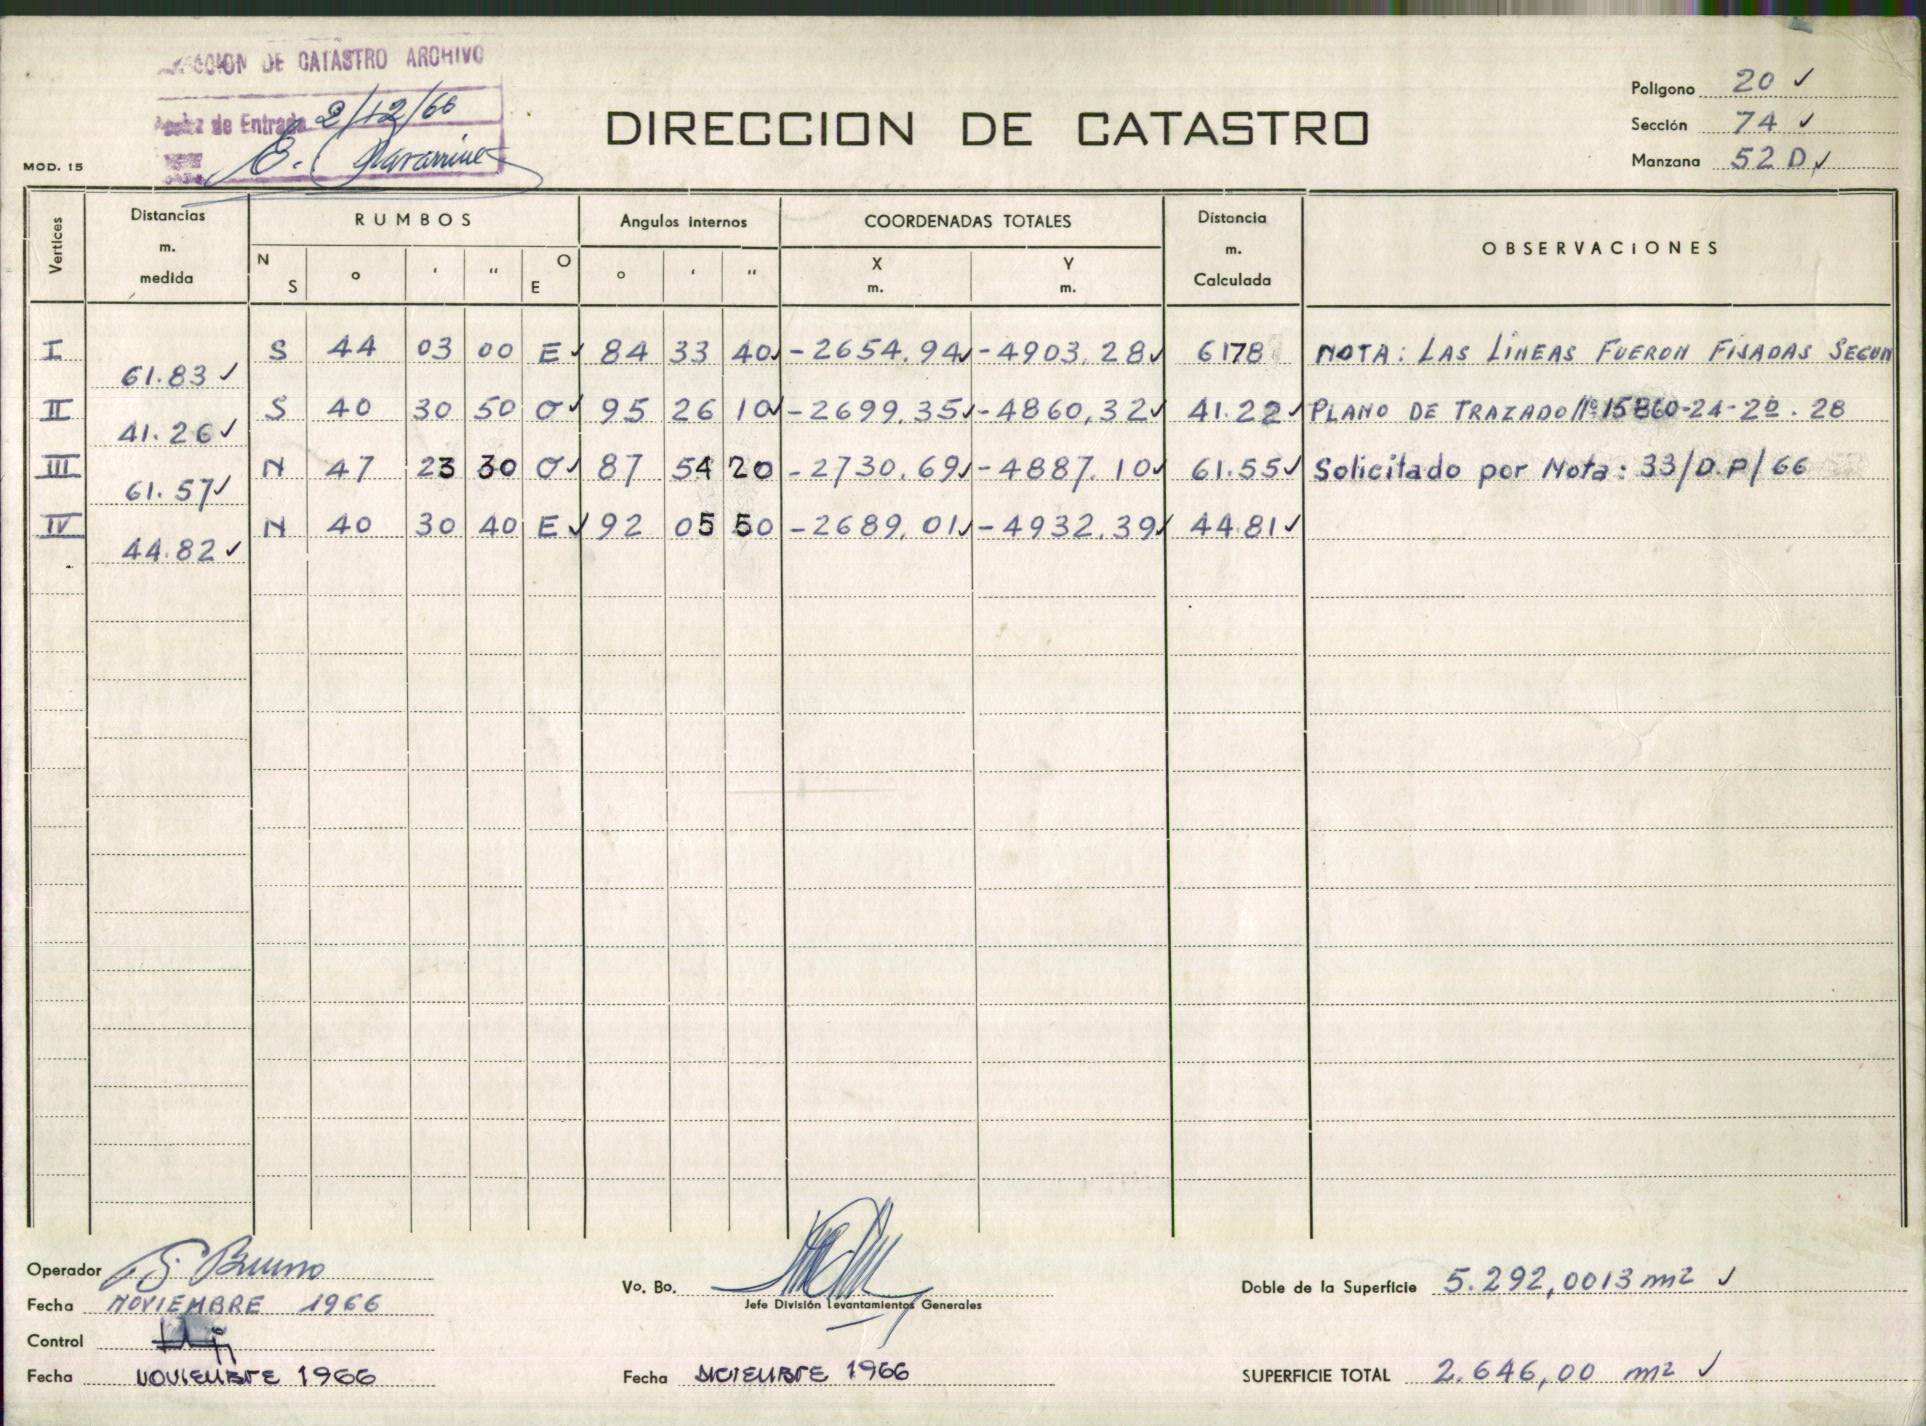 DE CATASTRO ARCHIVO
de Entrada 2/12/66
E.
MOD. 15
DIRECCION DE CATASTRO
Poligono 20 ✓
Sección 74 ✓
Manzana 52 D ✓
Vertices | Distancias m. medida | RUMBOS N S ° ' " O E | Angulos internos ° ' " | COORDENADAS TOTALES X m. Y m. | Distancia m. Calculada | OBSERVACIONES
I S 44 03 00 E ✓ 84 33 40 ✓ -2654.94 ✓ -4903.28 ✓ 6178 NOTA: LAS LINEAS FUERON FIJADAS SEGUN
61.83 ✓
II S 40 30 50 O ✓ 95 26 10 ✓ -2699.35 ✓ -4860,32 ✓ 41.22 ✓ PLANO DE TRAZADO Nº 15860-24-2º.28
41.26 ✓
III N 47 23 30 O ✓ 87 54 20 -2730.69 ✓ -4887.10 ✓ 61.55 ✓ Solicitado por Nota: 33/D.P/66
61.57 ✓
IV N 40 30 40 E ✓ 92 05 50 -2689.01 ✓ -4932.39 ✓ 44.81 ✓
44.82 ✓
Operador G. Bruno
Fecha NOVIEMBRE 1966
Control
Fecha NOVIEMBRE 1966
Vo. Bo.
Jefe División Levantamientos Generales
Fecha DICIEMBRE 1966
Doble de la Superficie 5.292,0013 m2 ✓
SUPERFICIE TOTAL 2.646,00 m2 ✓